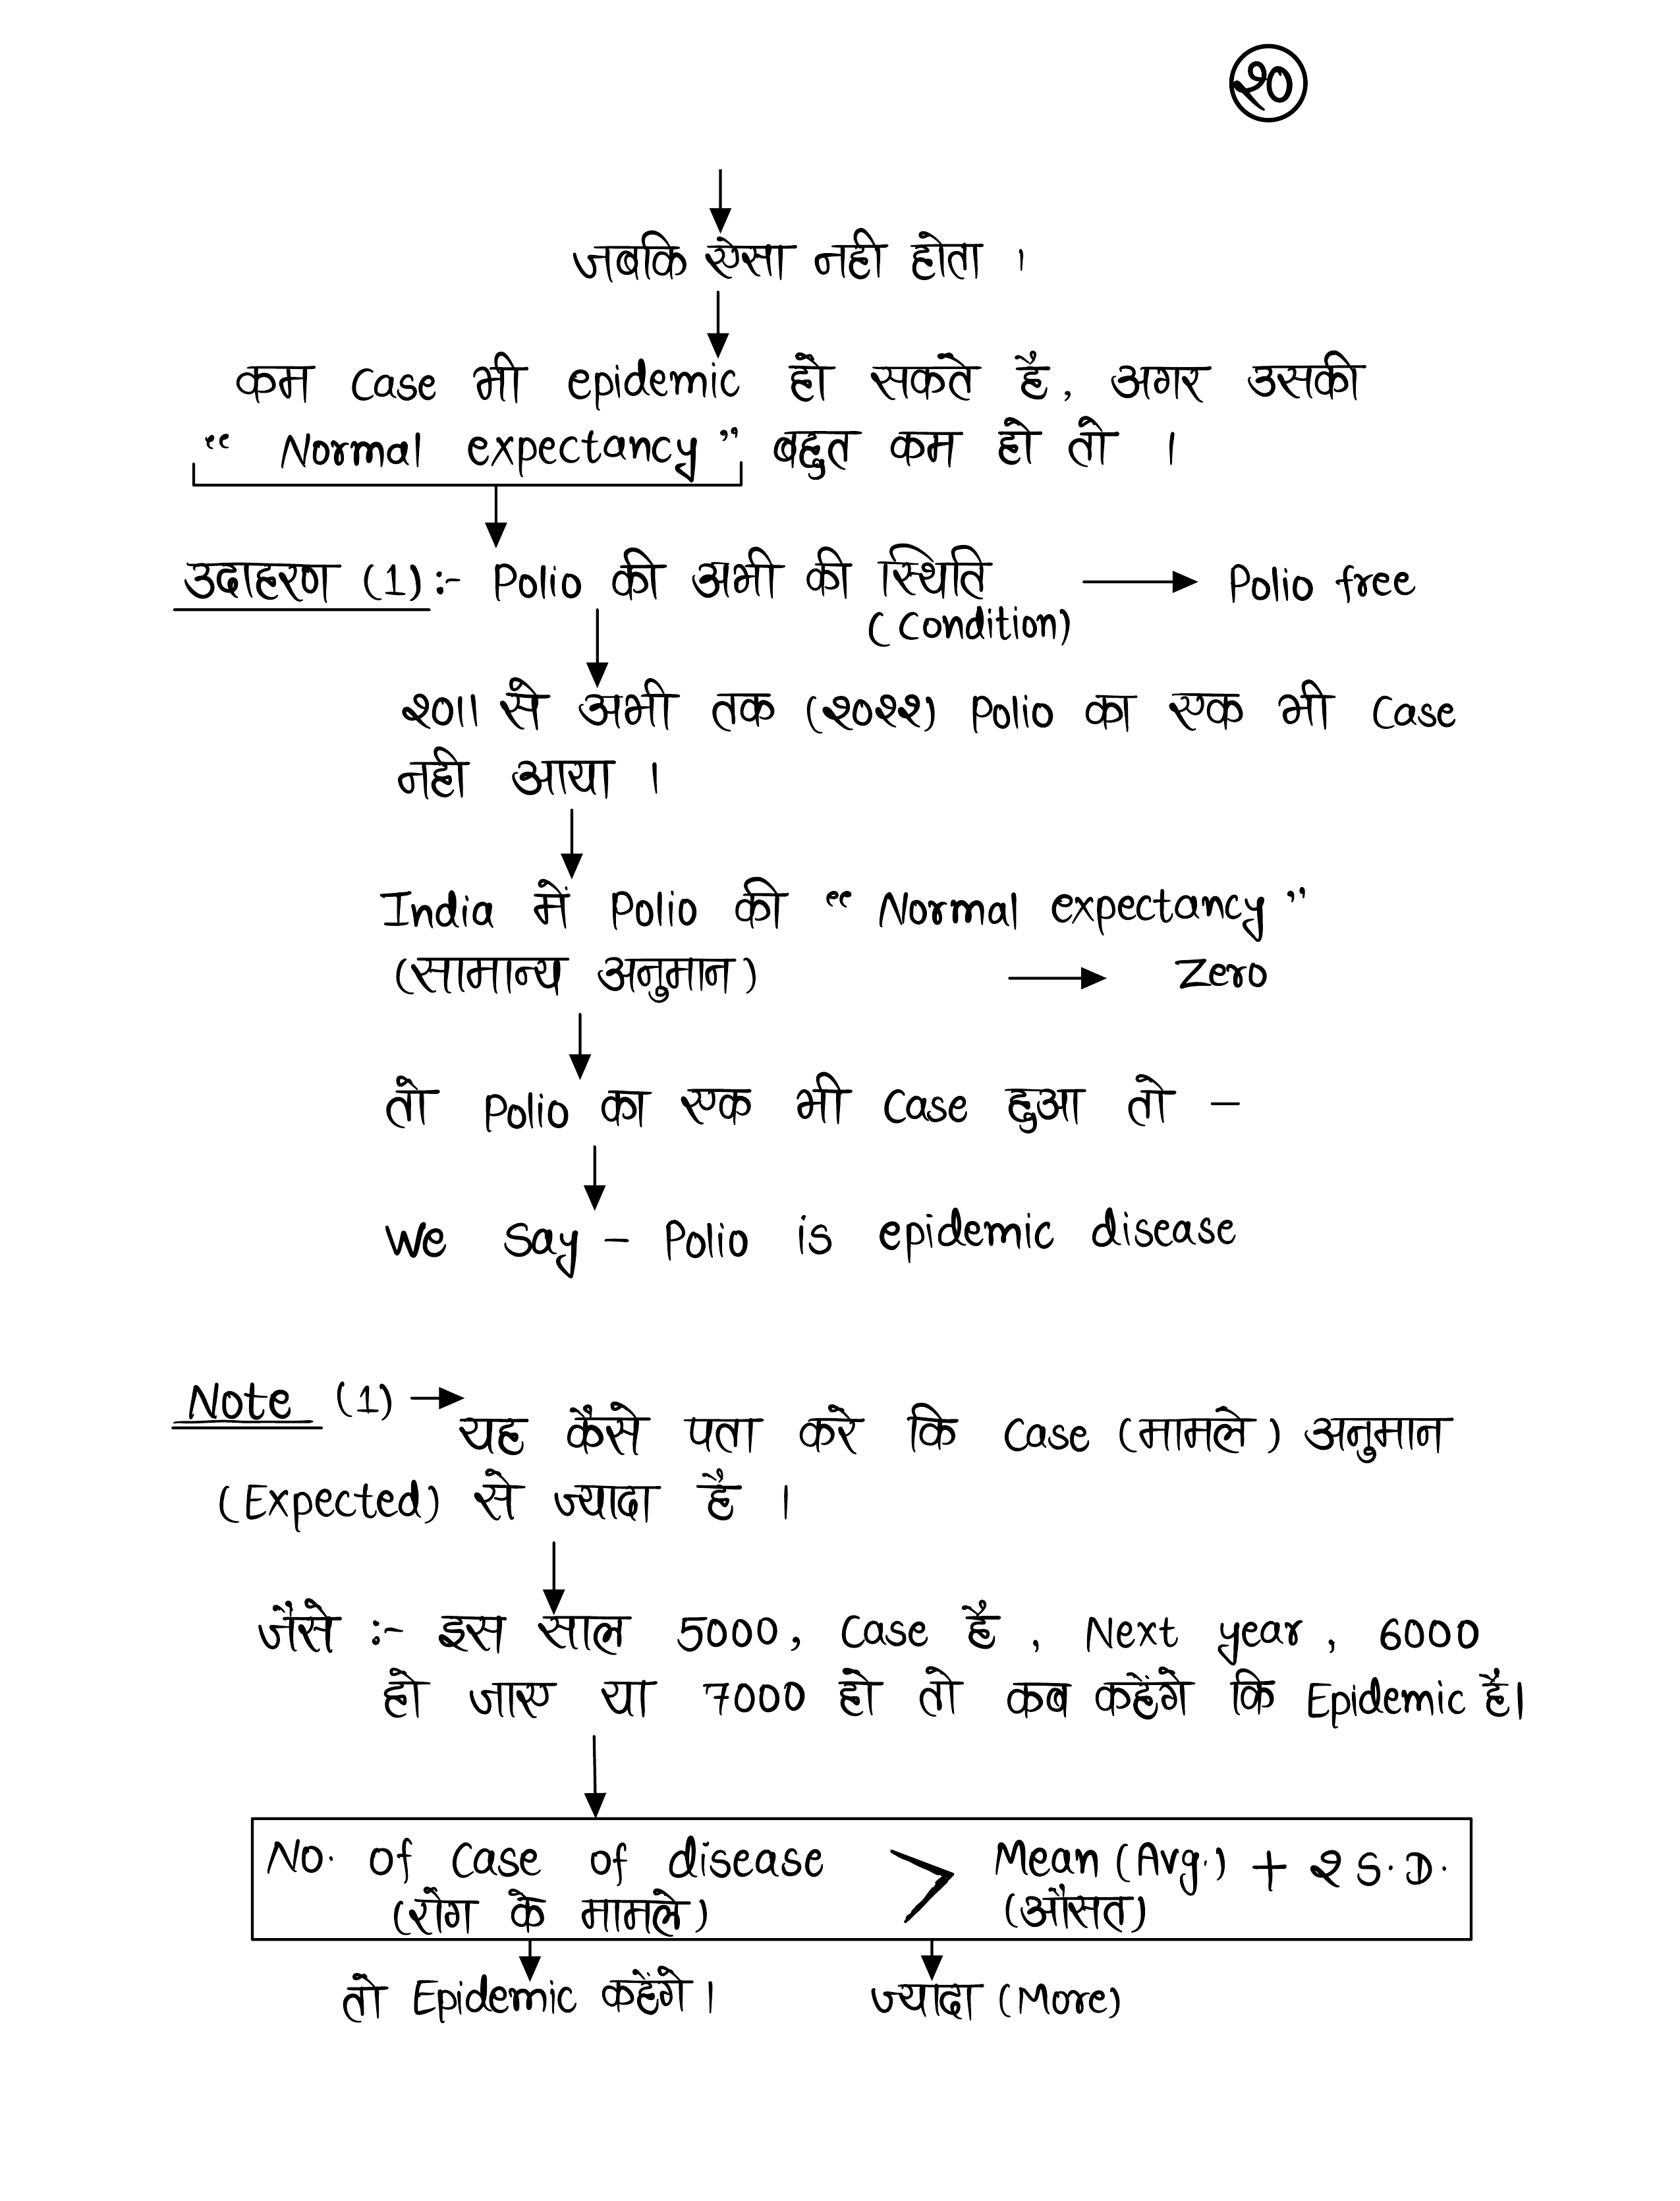 २०
जबकि ऐसा नही होता ।
कम Case भी epidemic हो सकते है, अगर उसकी
“ Normal expectancy ” बहुत कम हो तो ।
उदाहरण (1) :- Polio की अभी की स्थिति → Polio free
(Condition)
२०11 से अभी तक (२०२२) Polio का एक भी Case
नही आया ।
India में Polio की “ Normal expectancy ”
(सामान्य अनुमान) → Zero
तो Polio का एक भी Case हुआ तो –
We Say – Polio is epidemic disease
Note (1) → यह कैसे पता करे कि Case (मामले) अनुमान
(Expected) से ज्यादा है ।
जैसे :- इस साल 5000, Case है , Next year , 6000
हो जाए या 7000 हो तो कब कहेंगे कि Epidemic है।
No. of Case of disease > Mean (Avg.) + २ S.D.
(रोग के मामले) (औसत)
तो Epidemic कहेंगे । ज्यादा (More)